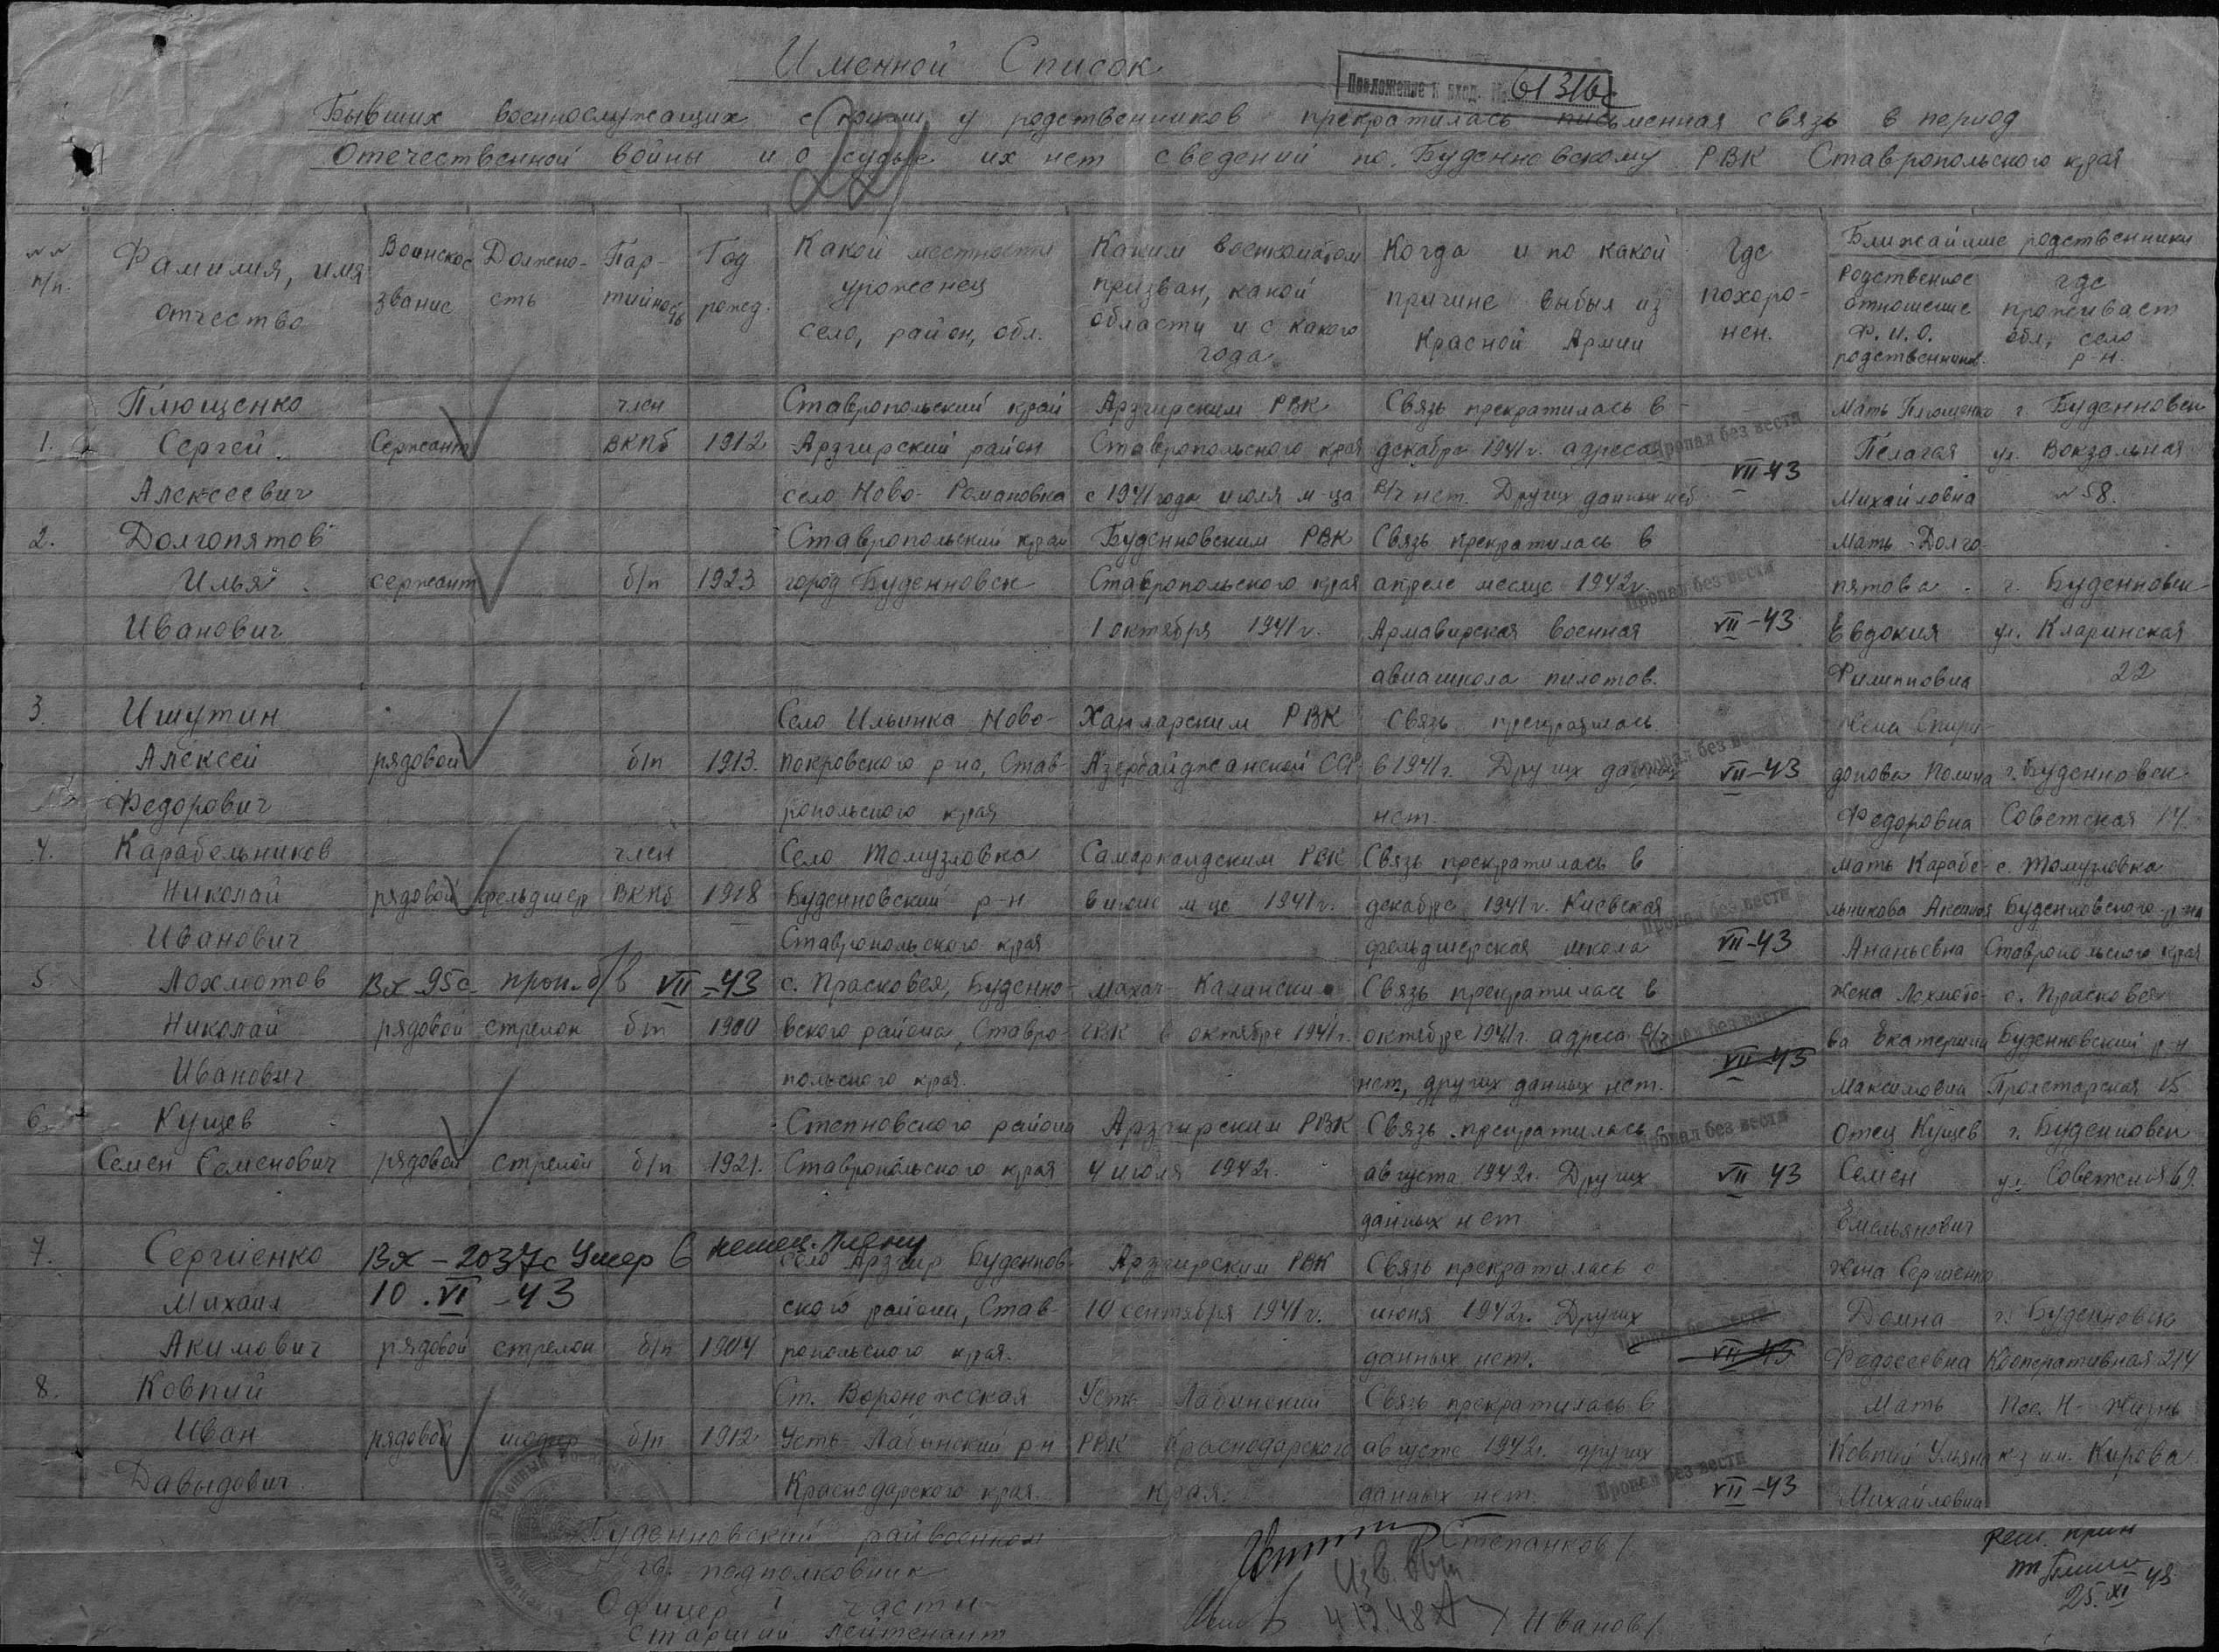 Именной Список
Приложение к вход. № 61316с
Бывших военнослужащих с коими у родственников прекратилась письменная связь в период
Отечественной войны и о судьбе их нет сведений по Буденновскому РВК Ставропольского края
221
№№ п/п.
Фамилия, имя отчество
Воинское звание
Должно-сть
Пар-тийность
Год рожд.
Какой местности уроженец село, район, обл.
Каким военкоматом призван, какой области и с какого года
Когда и по какой причине выбыл из Красной Армии
Где похоро-нен.
Ближайшие родственники
Родственное отношение Ф.И.О. родственников.
где проживает обл, село р-н.
Плющенко член Ставропольский край Арзгирским РВК Связь прекратилась в Мать Плющенко г. Буденновск
1. Сергей Сержант ВКПб 1912 Арзгирский район Ставропольского края декабре 1941 г. адреса Пропал без вести Пелагея ул. Вокзальная
Алексеевич село Ново-Романовка с 1941 года июля м-ца п/п нет. Других данных нет VII-43 Михайловна №58.
2. Долгопятов Ставропольский край Буденновским РВК Связь прекратилась в Мать Долго-
Илья сержант б/п 1923 город Буденновск Ставропольского края апреле месяце 1942 г. Пропал без вести пятова г. Буденновск
Иванович 1 октября 1941 г. Армавирская военная VII-43 Евдокия ул. Кларинская
авиашкола пилотов. Филипповна 22
3. Ишутин Село Ильинка Ново- Ханларским РВК Связь прекратилась Жена Спири-
Алексей рядовой б/п 1913. покровского р-на, Став- Азербайджанской ССР в 1941 г. Других данных Пропал без вести VII-43 донова Полина г. Буденновск
Федорович ропольского края нет. Федоровна Советская 14.
4. Карабельников член Село Томузловка Самаркандским РВК Связь прекратилась в Мать Карабе- с. Томузловка
Николай рядовой фельдшер ВКПб 1918 Буденновский р-н в июне м-це 1941 г. декабре 1941 г. Киевская Пропал без вести льникова Аксинья Буденновского р-на
Иванович Ставропольского края фельдшерская школа VII-43 Ананьевна Ставропольского края
5. Лохмотов Вх 95с проп. б/в VII-43 с. Прасковея, Буденно- Махач-Калински Связь прекратилась в Жена Лохмото- с. Прасковея
Николай рядовой стрелок б/п 1900 вского района, Ставро- ГВК в октябре 1941 г. октябре 1941 г. адреса п/п Пропал без вести ва Екатерина Буденновский р-н
Иванович польского края. нет, других данных нет. VII-43 Максимовна Пролетарская 15
6. Кущев Степновского района Арзгирским РВК Связь прекратилась с Пропал без вести Отец Кущев г. Буденновск
Семен Семенович рядовой стрелок б/п 1921. Ставропольского края 4 июля 1942 г. августа 1942 г. Других VII 43 Семен ул. Советская 69.
данных нет Емельянович
7. Сергиенко Вх-2037с Умер в немец. плену село Арзгир Буденнов- Арзгирским РВК Связь прекратилась с Жена Сергиенко
Михаил 10.VI-43 ского района, Став- 10 сентября 1941 г. июня 1942 г. Других Пропал без вести Домна г. Буденновск
Акимович рядовой стрелок б/п 1904 ропольского края. данных нет. VII 43 Федосеевна Кооперативная 214
8. Ковпий Ст. Воронежская Усть-Лабинский Связь прекратилась в Мать Пос. Н-Жизнь
Иван рядовой шофер б/п 1912 Усть-Лабинский р-н РВК Краснодарского августе 1942 г. других Ковпий Ульяна к-з им. Кирова
Давыдович Краснодарского края. края. данных нет. Пропал без вести VII-43 Михайловна
Буденновский райвоенком
гв. подполковник Степанков/
Офицер I части
старший лейтенант /Иванов/
4.12.48
25.XI 48